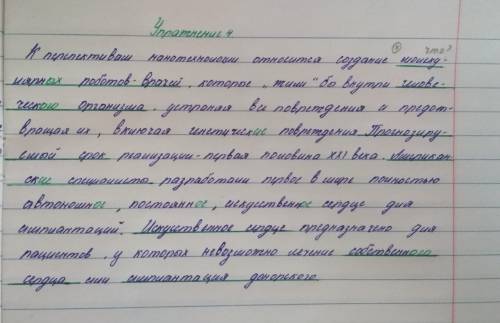 Упражнение 4
что?
К перспективам нанотехнологии относится создание молеку-
лярных роботов-врачей, которые "жили" бы внутри челове-
ческого организма, устраняя все повреждения и предот-
вращая их, включая генетические повреждения. Прогнозиру-
емый срок реализации - первая половина XXI века. Американ
ские специалисты разработали первое в мире полностью
автономное, постоянное, искусственное сердце для
имплантаций. Искуственное сердце предназначено для
пациентов, у которых невозможно лечение собственного
сердца или имплантация донорского.